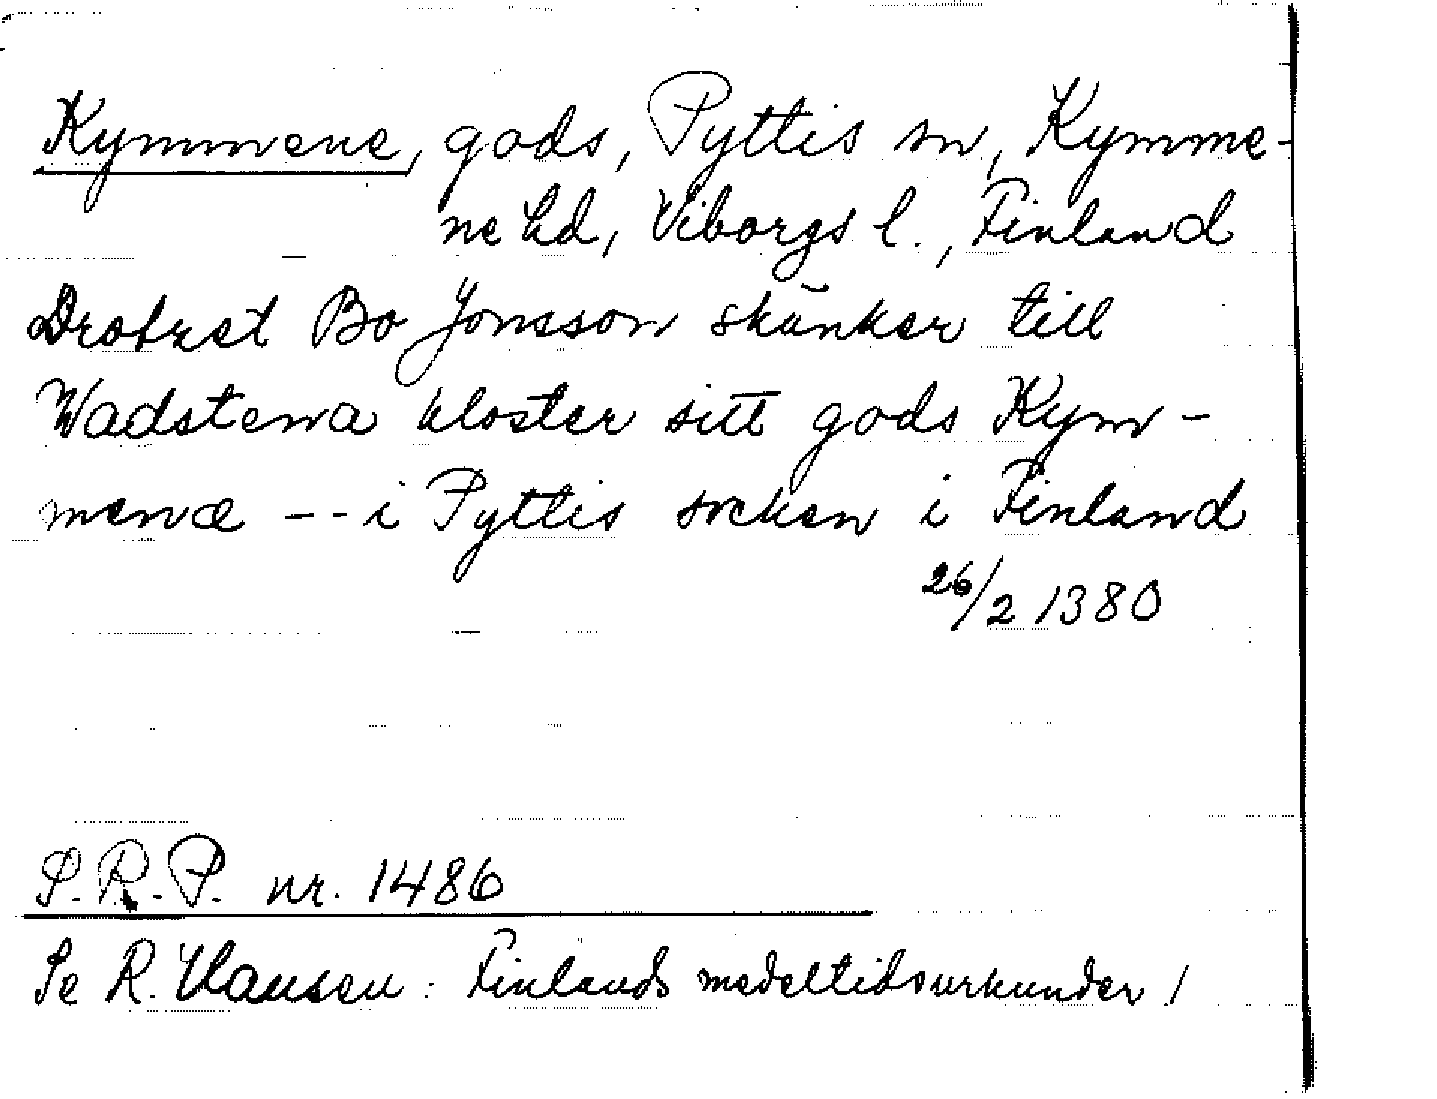 Kymmene, gods, Pyttis sn, Kymme-
ne hd, Viborgs l., Finland
Drotset Bo Jonsson skänker till
Wadstena kloster sitt gods Kym-
mene -- i Pyttis socken i Finland
26/2 1380
S.R.P. nr. 1486
Se R. Hausen: Finlands medeltidsurkunder 1